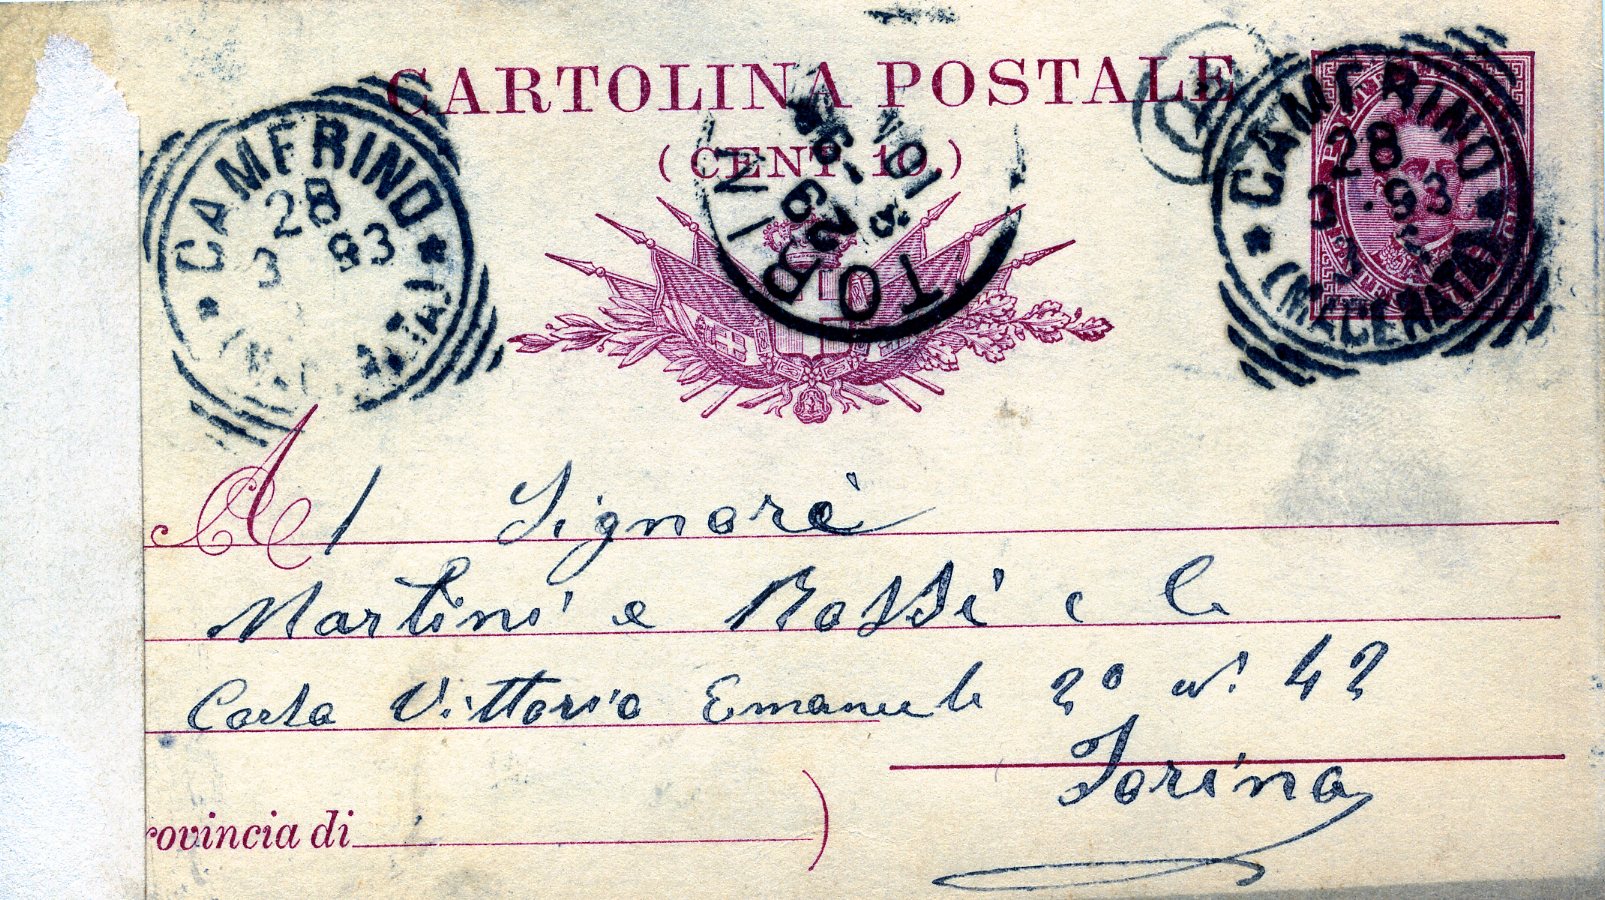 CARTOLINA POSTALE
(CENT. 10.)
CAMERINO
28
3 93
TORIN
29
CAMERINO
28
3 . 93
(MACERATA)
Al Signore
Martini e Rossi e C.
Corso Vittorio Emanuele 2° n. 42
Torino
rovincia di )